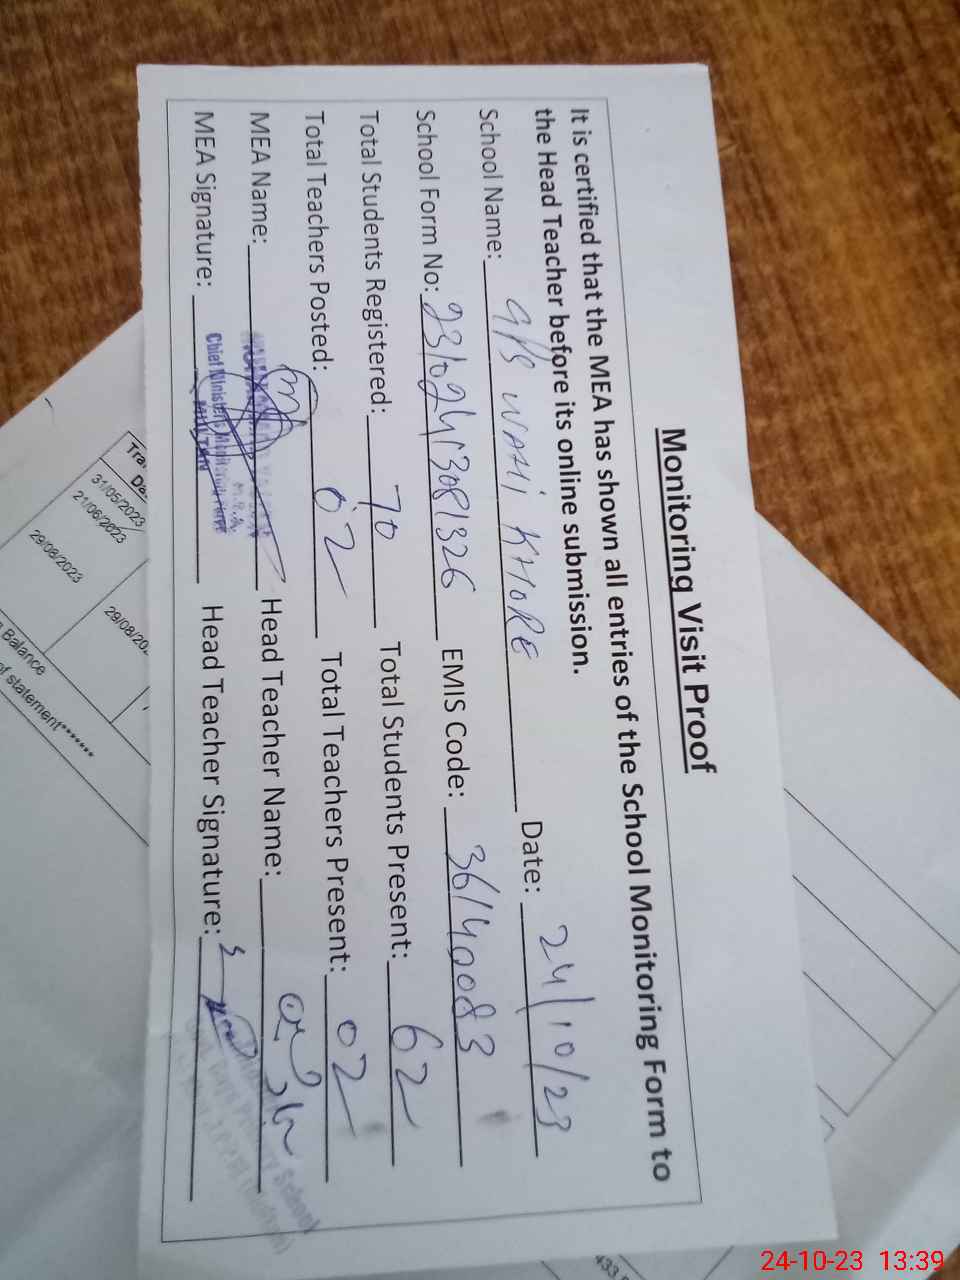 Monitoring Visit Proof
It is certified that the MEA has shown all entries of the School Monitoring Form to
the Head Teacher before its online submission.
School Name: G/PS WAHI KHORE Date: 24/10/23
School Form No: EMIS Code: 36140083
Total Students Registered: 70 Total Students Present: 62
Total Teachers Posted: 02 Total Teachers Present: 02
MEA Name: Head Teacher Name:
MEA Signature: Head Teacher Signature:
Chief Minister's Monitoring Force
MULTAN
31/05/2023
21/06/2023
29/08/2023
Balance
of statement*******
24-10-23 13:39